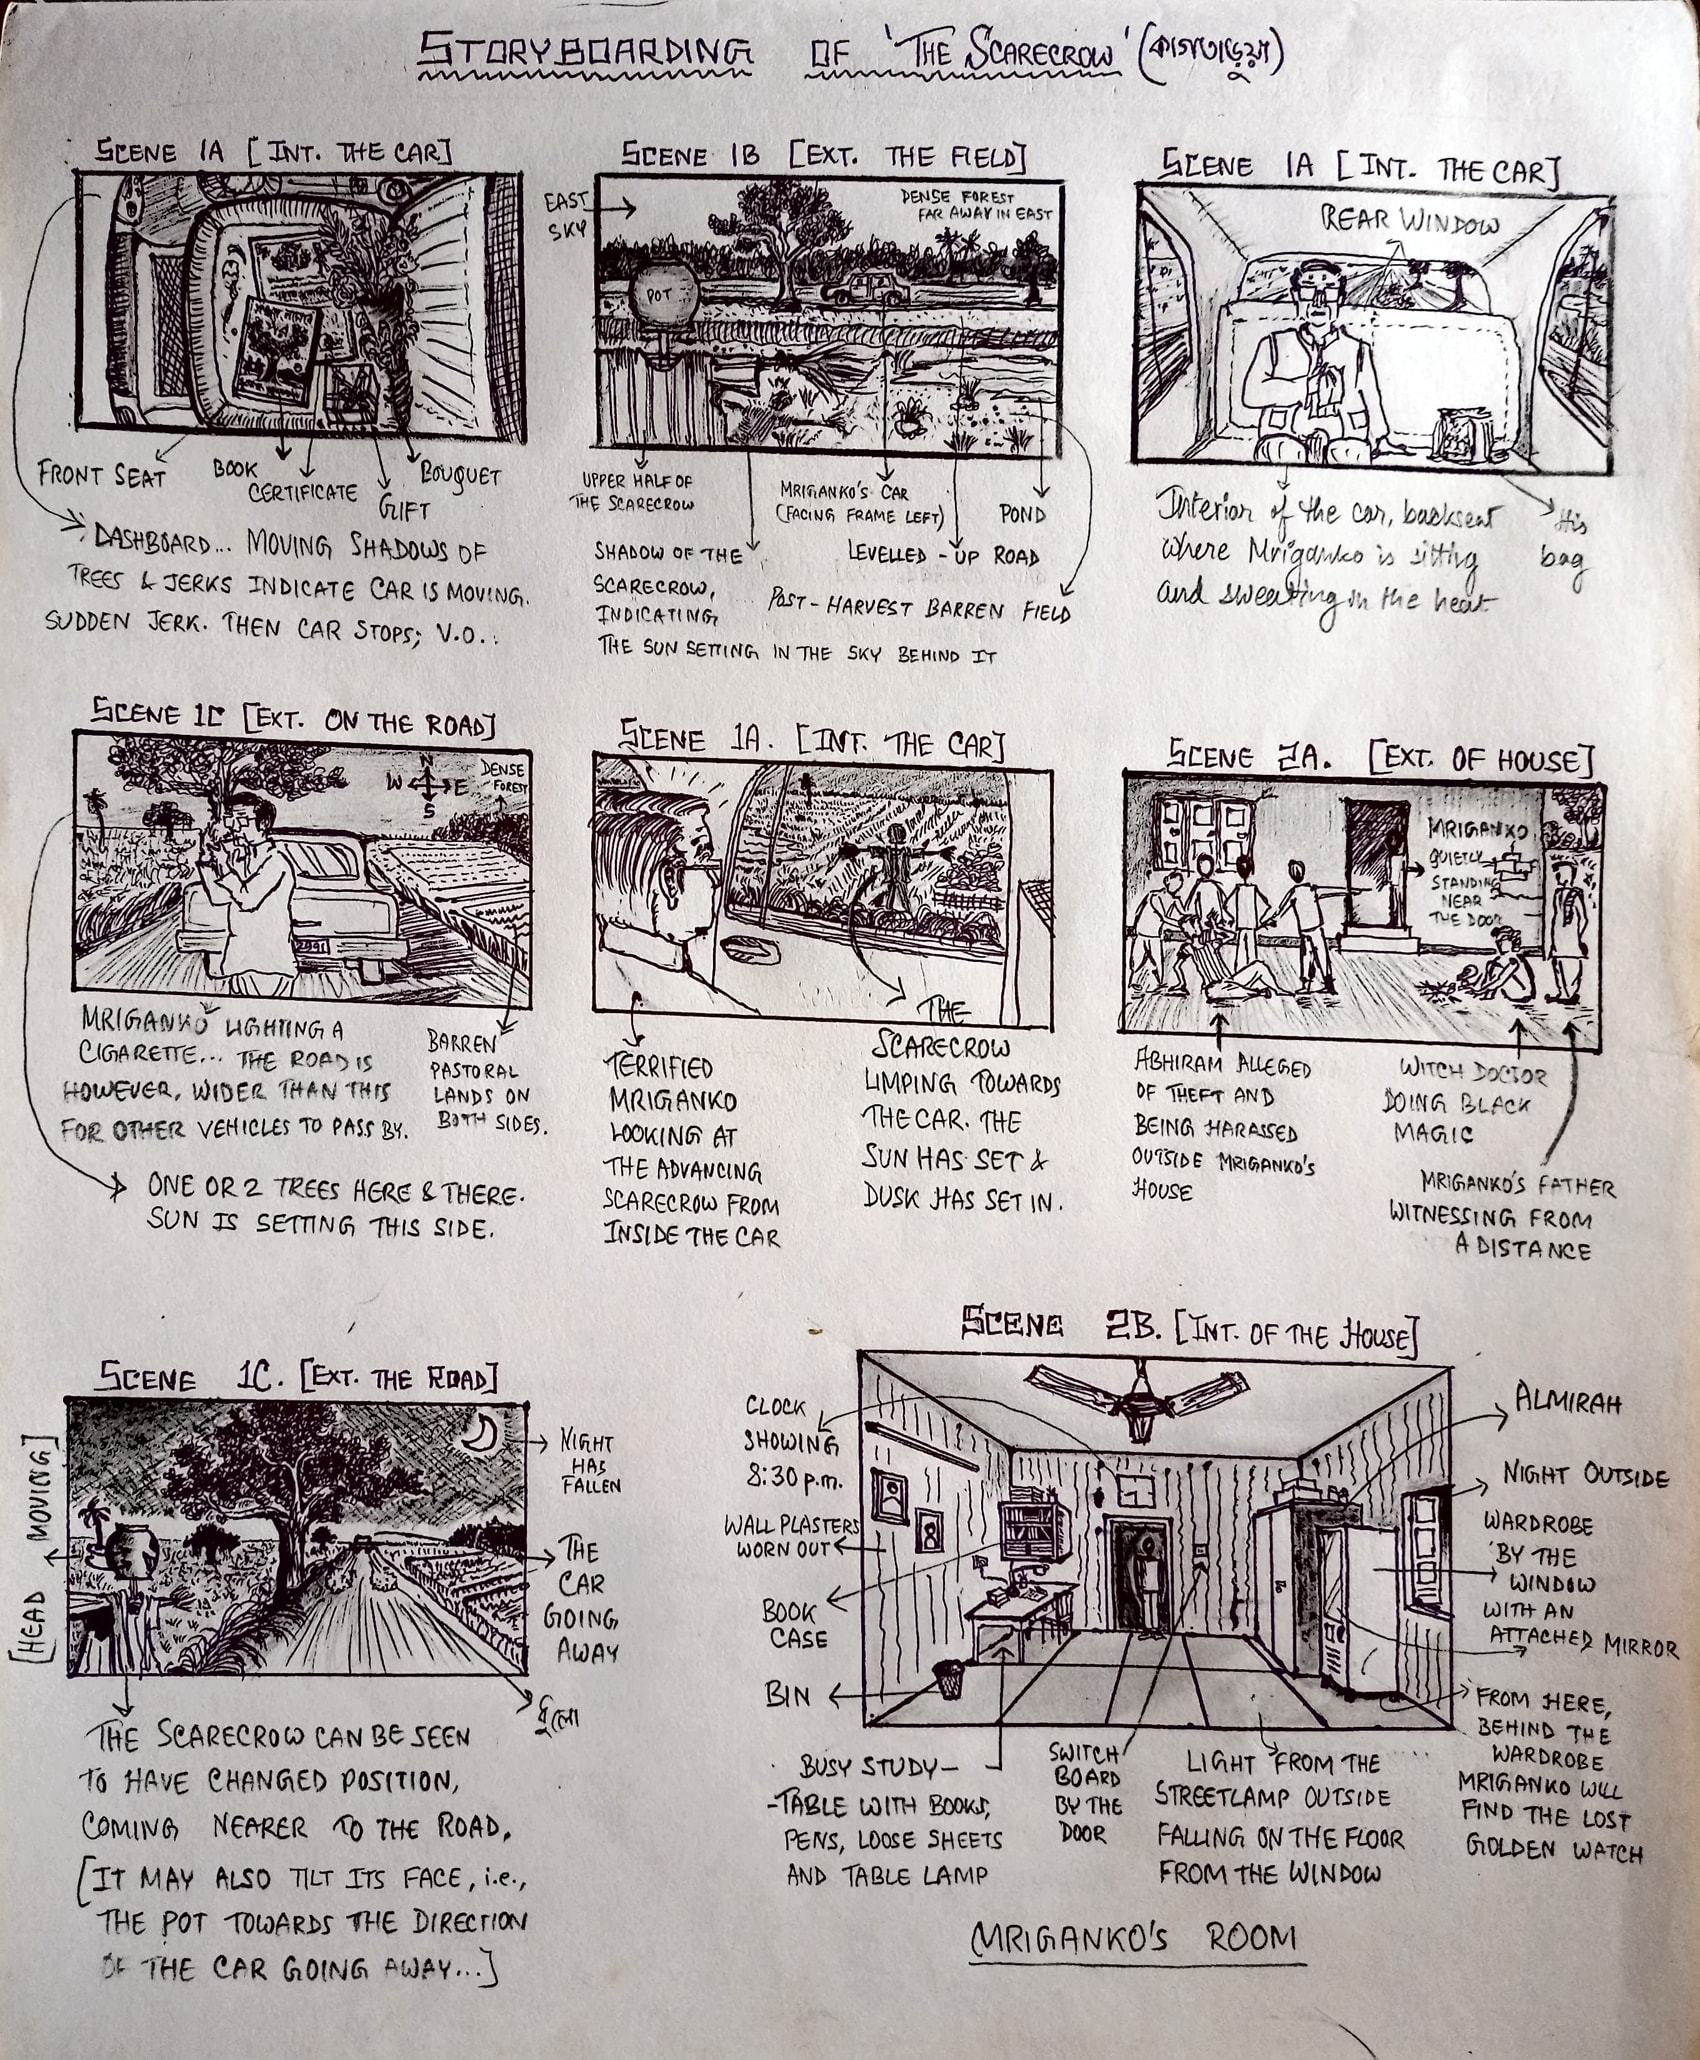 STORYBOARDING OF 'THE SCARECROW' (কাগতাড়ুয়া)
SCENE 1A [INT. THE CAR]
FRONT SEAT
BOOK
CERTIFICATE
GIFT
BOUQUET
DASHBOARD... MOVING SHADOWS OF
TREES & JERKS INDICATE CAR IS MOVING.
SUDDEN JERK. THEN CAR STOPS; V.O..
SCENE 1B [EXT. THE FIELD]
EAST
SKY
DENSE FOREST
FAR AWAY IN EAST
POT
UPPER HALF OF
THE SCARECROW
MRIGANKO'S CAR
(FACING FRAME LEFT)
POND
SHADOW OF THE
SCARECROW,
INDICATING
THE SUN SETTING IN THE SKY BEHIND IT
LEVELLED-UP ROAD
POST-HARVEST BARREN FIELD
SCENE 1A [INT. THE CAR]
REAR WINDOW
Interior of the car, backseat
where Mriganko is sitting
and sweating in the heat
His
bag
SCENE 1C [EXT. ON THE ROAD]
N
W E
S
DENSE
FOREST
2991
MRIGANKO LIGHTING A
CIGARETTE... THE ROAD IS
HOWEVER, WIDER THAN THIS
FOR OTHER VEHICLES TO PASS BY.
BARREN
PASTORAL
LANDS ON
BOTH SIDES.
ONE OR 2 TREES HERE & THERE.
SUN IS SETTING THIS SIDE.
SCENE 1A. [INT. THE CAR]
TERRIFIED
MRIGANKO
LOOKING AT
THE ADVANCING
SCARECROW FROM
INSIDE THE CAR
THE
SCARECROW
LIMPING TOWARDS
THE CAR. THE
SUN HAS SET &
DUSK HAS SET IN.
SCENE 2A. [EXT. OF HOUSE]
MRIGANKO
QUIETLY
STANDING
NEAR
THE DOOR
ABHIRAM ALLEGED
OF THEFT AND
BEING HARASSED
OUTSIDE MRIGANKO'S
HOUSE
WITCH DOCTOR
DOING BLACK
MAGIC
MRIGANKO'S FATHER
WITNESSING FROM
A DISTANCE
SCENE 1C. [EXT. THE ROAD]
[HEAD MOVING]
NIGHT
HAS
FALLEN
THE
CAR
GOING
AWAY
ধুলো
THE SCARECROW CAN BE SEEN
TO HAVE CHANGED POSITION,
COMING NEARER TO THE ROAD.
[IT MAY ALSO TILT ITS FACE, i.e.,
THE POT TOWARDS THE DIRECTION
OF THE CAR GOING AWAY...]
SCENE 2B. [INT. OF THE HOUSE]
CLOCK
SHOWING
8:30 p.m.
WALL PLASTERS
WORN OUT
BOOK
CASE
BIN
BUSY STUDY-
-TABLE WITH BOOKS,
PENS, LOOSE SHEETS
AND TABLE LAMP
SWITCH
BOARD
BY THE
DOOR
LIGHT FROM THE
STREETLAMP OUTSIDE
FALLING ON THE FLOOR
FROM THE WINDOW
ALMIRAH
NIGHT OUTSIDE
WARDROBE
BY THE
WINDOW
WITH AN
ATTACHED MIRROR
FROM HERE,
BEHIND THE
WARDROBE
MRIGANKO WILL
FIND THE LOST
GOLDEN WATCH
MRIGANKO'S ROOM